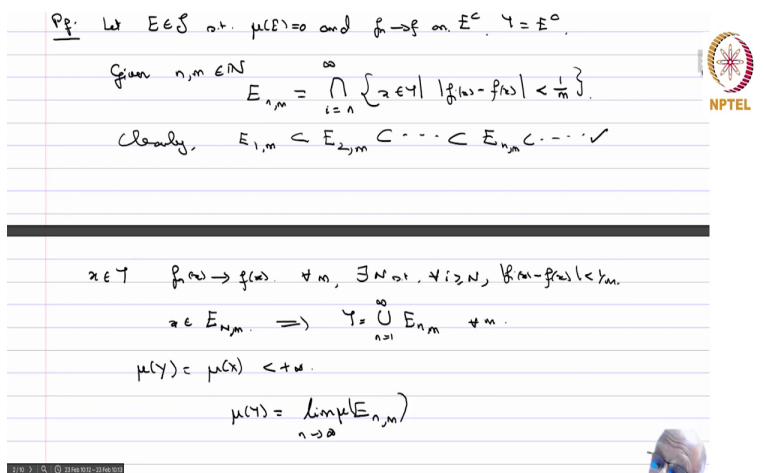 Pf: Let E ∈ S s.t. μ(E)=0 and fn → f on E^c. Y = E^c.
Given n,m ∈ ℕ
E_{n,m} = ⋂_{i=n}^{∞} {x ∈ Y | |f_i(x) - f(x)| < 1/m}.
Clearly, E_{1,m} ⊂ E_{2,m} ⊂ ··· ⊂ E_{n,m} ⊂ ···· ✓
NPTEL
x ∈ Y f_n(x) → f(x). ∀ m, ∃ N s.t. ∀ i ≥ N, |f_i(x) - f(x)| < 1/m.
x ∈ E_{N,m}. ⟹ Y = ⋃_{n=1}^{∞} E_{n,m} ∀ m.
μ(Y) = μ(X) < +∞.
μ(Y) = lim_{n→∞} μ(E_{n,m})
2/10 23 Feb 10:12 - 23 Feb 10:13